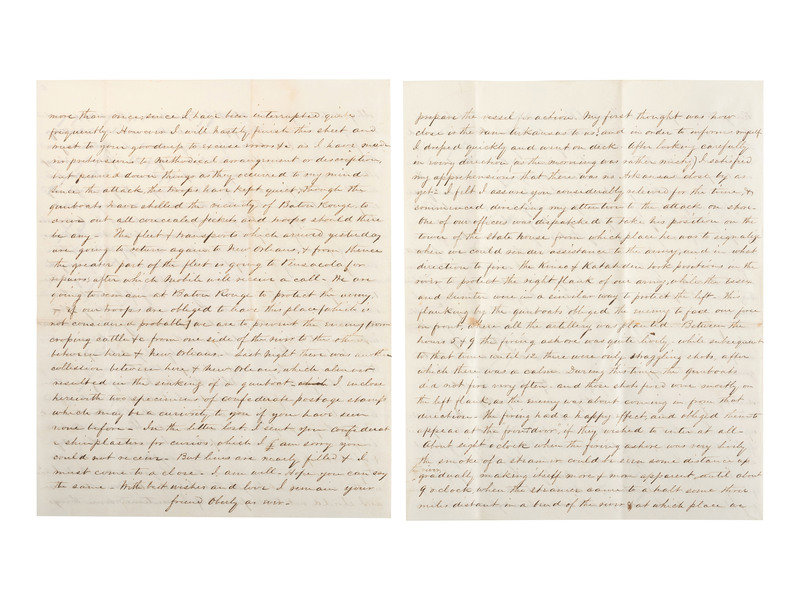 more than once, since I have been interrupted quite
frequently. However I will hastily finish this sheet and
must to your goodness to excuse errors &c as I have made
no pretensions to methodical arrangement or description,
but penned down things as they occurred to my mind.
Since the attack the troops have kept quiet, though the
gunboats have shelled the vicinity of Baton Rouge, to
drive out all concealed pickets and troops should there
be any. The fleet & transports which arrived yesterday
are going to return again to New Orleans, & from thence
the greater part of the fleet is going to Pensacola for
repairs, after which Mobile will receive a call. We are
going to remain at Baton Rouge to protect the army
& if our troops are obliged to leave this place (which is
not considered probable) we are to prevent the enemy from
croping cattle &c from one side of the river to the other
between here & New Orleans. Last night there was another
collission between here & New Orleans, which almost
resulted in the sinking of a gunboat. I inclose
herewith two specimens of Confederate postage stamps
which may be a curiosity to you if you have seen
none before. In the letter lost I sent you Confederate
shinplasters for curios, which I am sorry you
could not receive. But lines are nearly filled & I
must come to a close. I am well. Hope you can say
the same. With best wishes and love I remain your
friend Oberly as ever.
prepare the vessel for action. My first thought was how
close is the ram Arkansas to us; and in order to inform myself
I dressed quickly and went on deck. After looking carefully
in every direction (as the morning was rather misty) I satisfied
my apprehensions that there was no Arkansas close by as
yet. I felt I assure you considerably relieved for the time, &
commenced directing my attention to the attack on shore.
One of our officers was dispatched to take his position on the
tower of the State House from which place he was to signalize
when we could render assistance to the army, and in what
direction to fire. The Kineo & Katahdin took positions in the
river to protect the right flank of our army, while the Essex
and Sumter were in a similar way to protect the left. This
flanking by the gunboats obliged the enemy to face our force
in front, where all the artillery was planted. Between the
hours 3 & 9 the firing ashore was quite lively, while subsequent
to that time until 12 there were only straggling shots, after
which there was a calm. During this time the gunboats
did not fire very often, and those shots fired were mostly on
the left flank, as the enemy was about coming in from that
direction. The firing had a happy effect, and obliged them to
appear at the front door, if they wished to enter at all.
About eight o'clock when the firing ashore was very lively
the smoke of a steamer could be seen some distance up
the river
gradually making itself more & more apparent, until about
9 o'clock when the steamer came to a halt some three
miles distant, in a bend of the river, at which place we